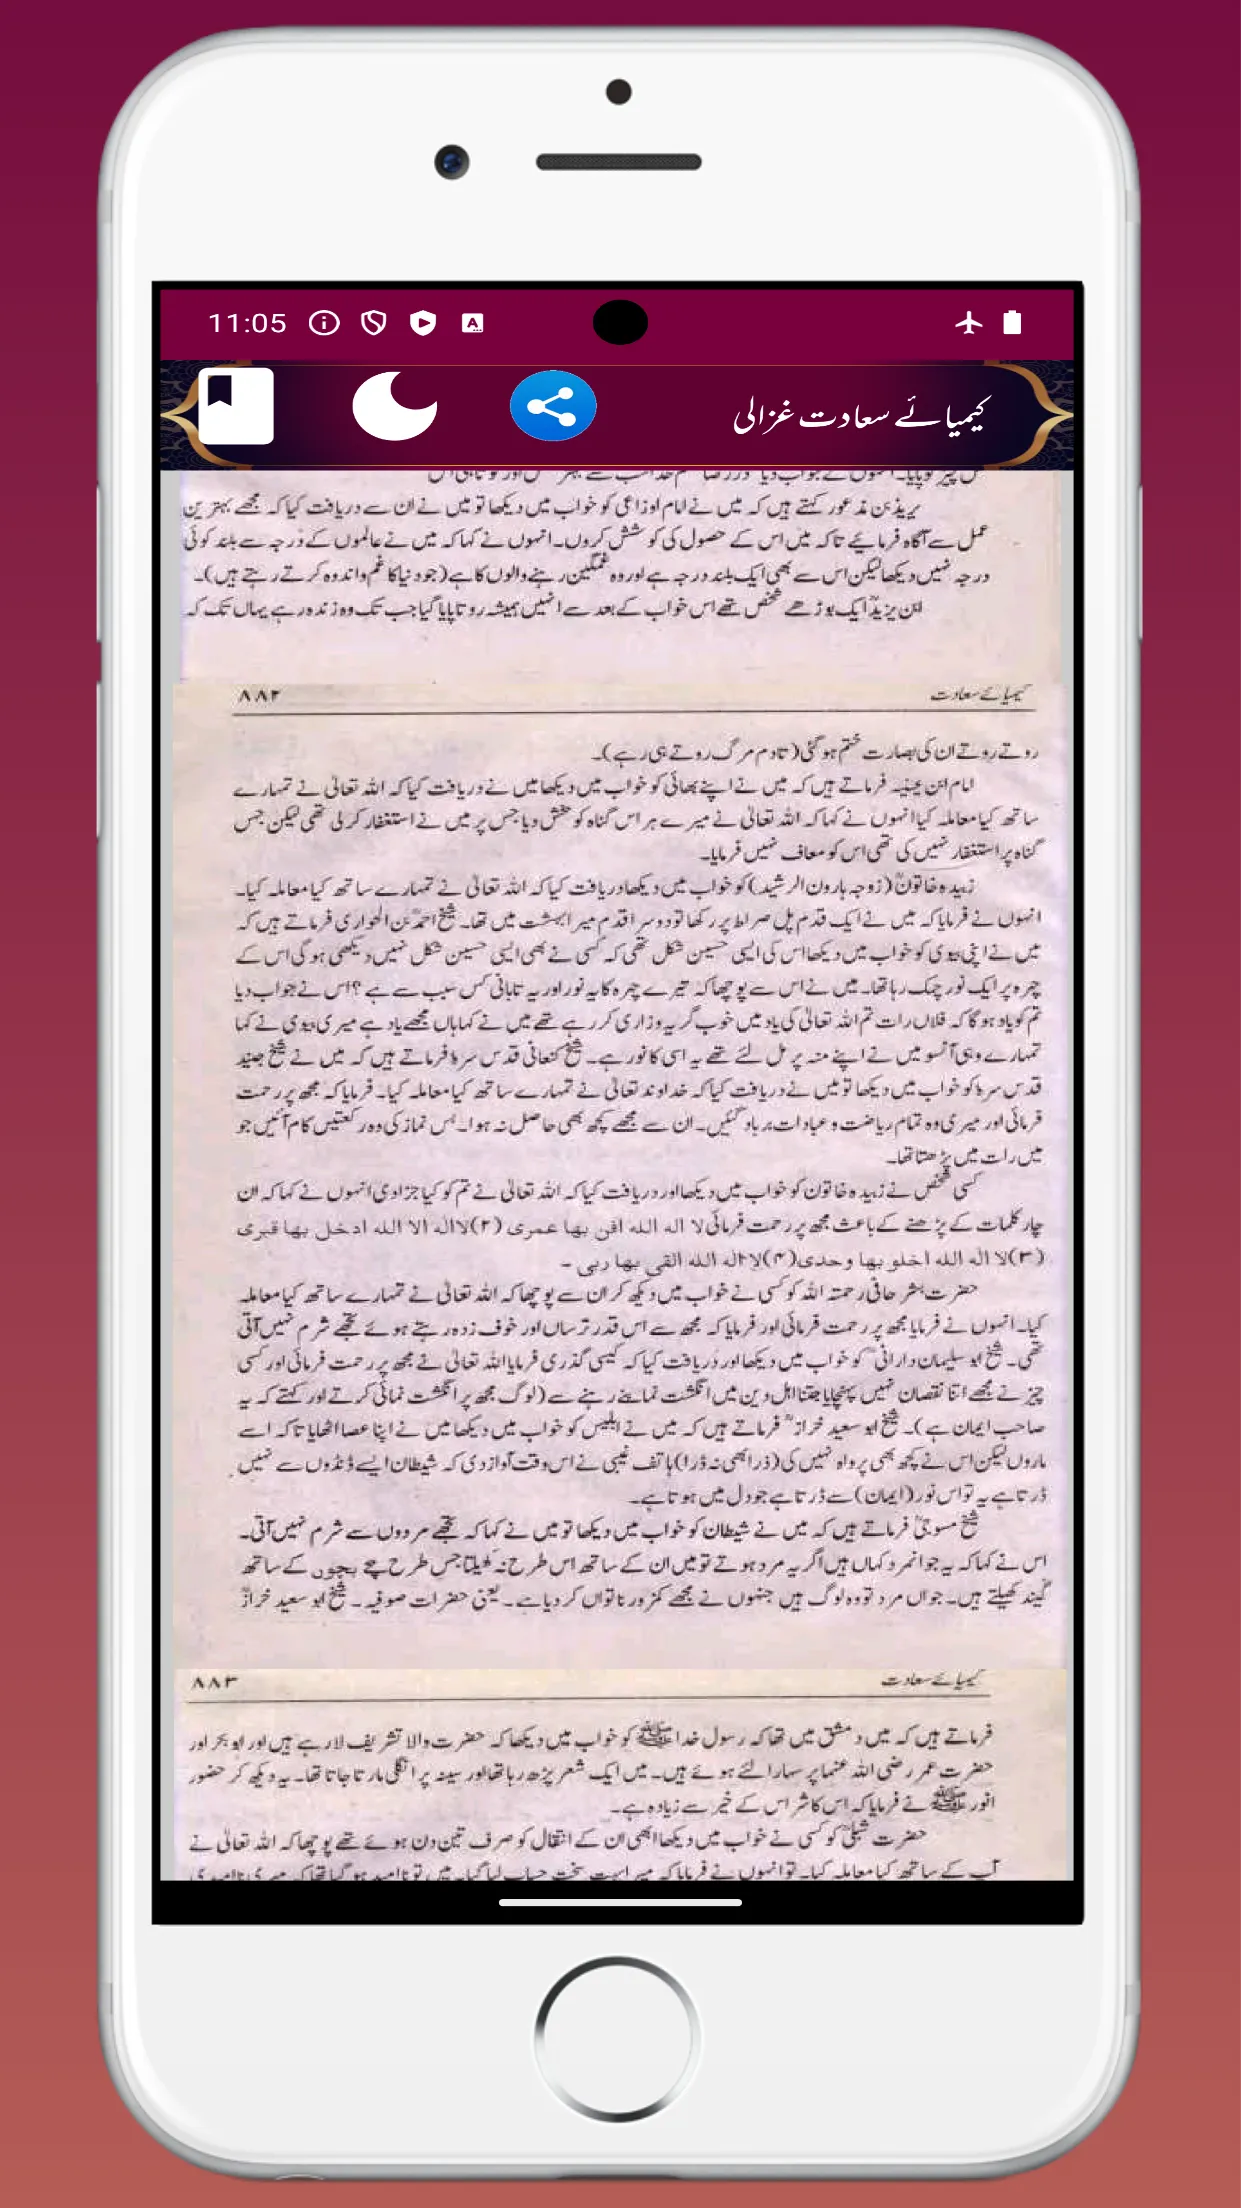 11:05
کیمیائے سعادت غزالی
یزید بن مذعور کہتے ہیں کہ میں نے امام اوزاعی کو خواب میں دیکھا تو میں نے ان سے دریافت کیا کہ مجھے بہترین
عمل سے آگاہ فرمایئے تاکہ میں اس کے حصول کی کوشش کروں۔ انہوں نے کہا کہ میں نے عالموں کے درجہ سے بلند کوئی
درجہ نہیں دیکھا لیکن اس سے بھی ایک بلند درجہ ہے اور وہ غمگین رہنے والوں کا ہے (جو دنیا کا غم و اندوہ کرتے رہتے ہیں)۔
ابن یزیدؒ ایک بوڑھے شخص تھے اس خواب کے بعد سے انہیں ہمیشہ روتا پایا گیا جب تک وہ زندہ رہے یہاں تک کہ
کیمیائے سعادت
۸۸۲
روتے روتے ان کی بصارت ختم ہو گئی (تادم مرگ روتے ہی رہے)۔
امام ابن عیینہ فرماتے ہیں کہ میں نے اپنے بھائی کو خواب میں دیکھا میں نے دریافت کیا کہ اللہ تعالیٰ نے تمہارے
ساتھ کیا معاملہ کیا انہوں نے کہا کہ اللہ تعالیٰ نے میرے ہر اس گناہ کو بخش دیا جس پر میں نے استغفار کر لی تھی لیکن جس
گناہ پر استغفار نہیں کی تھی اس کو معاف نہیں فرمایا۔
زبیدہ خاتونؒ (زوجہ ہارون الرشید) کو خواب میں دیکھا دریافت کیا کہ اللہ تعالیٰ نے تمہارے ساتھ کیا معاملہ کیا۔
انہوں نے فرمایا کہ میں نے ایک قدم پل صراط پر رکھا تو دوسرا قدم میرا بہشت میں تھا۔ شیخ احمدؒ بن الحواری فرماتے ہیں کہ
میں نے اپنی بیوی کو خواب میں دیکھا اس کی ایسی حسین شکل تھی کہ کسی نے بھی ایسی حسین شکل نہیں دیکھی ہو گی اس کے
چہرہ پر ایک نور چمک رہا تھا۔ میں نے اس سے پوچھا کہ تیرے چہرہ کا یہ نور اور یہ تابانی کس سبب سے ہے؟ اس نے جواب دیا
تم کو یاد ہو گا کہ فلاں رات تم اللہ تعالیٰ کی یاد میں خوب گریہ وزاری کر رہے تھے میں نے کہا ہاں مجھے یاد ہے میری بیوی نے کہا
تمہارے وہی آنسو میں نے اپنے منہ پر مل لئے تھے یہ اسی کا نور ہے۔ شیخ کتعانی قدس سرہٗ فرماتے ہیں کہ میں نے شیخ جنید
قدس سرہٗ کو خواب میں دیکھا تو میں نے دریافت کیا کہ خداوند تعالیٰ نے تمہارے ساتھ کیا معاملہ کیا۔ فرمایا کہ مجھ پر رحمت
فرمائی اور میری وہ تمام ریاضت و عبادات برباد گئیں۔ ان سے مجھے کچھ بھی حاصل نہ ہوا۔ بس نماز کی وہ رکعتیں کام آئیں جو
میں رات میں پڑھتا تھا۔
کسی شخص نے زبیدہ خاتون کو خواب میں دیکھا اور دریافت کیا کہ اللہ تعالیٰ نے تم کو کیا جزا دی انہوں نے کہا کہ ان
چار کلمات کے پڑھنے کے باعث مجھ پر رحمت فرمائی لا اله الله افن بها عمری (۲) لااله الا الله ادخل بها قبری
(۳) لا اله الله اخلو بها وحدی (۴) لا اله الله القی بها ربی ۔
حضرت بشر حافی رحمتہ اللہ کو کسی نے خواب میں دیکھ کر ان سے پوچھا کہ اللہ تعالیٰ نے تمہارے ساتھ کیا معاملہ
کیا۔ انہوں نے فرمایا مجھ پر رحمت فرمائی اور فرمایا کہ مجھ سے اس قدر ترساں اور خوف زدہ رہتے ہوئے تجھے شرم نہیں آتی
تھی۔ شیخ ابو سلیمان دارانیؒ کو خواب میں دیکھا اور دریافت کیا کہ کیسی گذری فرمایا اللہ تعالیٰ نے مجھ پر رحمت فرمائی اور کسی
چیز نے مجھے اتنا نقصان نہیں پہنچایا جتنا اہل دین میں انگشت نما بنے رہنے سے (لوگ مجھ پر انگشت نمائی کرتے اور کہتے کہ یہ
صاحب ایمان ہے)۔ شیخ ابو سعید خرازؒ فرماتے ہیں کہ میں نے ابلیس کو خواب میں دیکھا میں نے اپنا عصا اٹھایا تاکہ اسے
ماروں لیکن اس نے کچھ بھی پرواہ نہیں کی (ذرا بھی نہ ڈرا) ہاتف غیبی نے اس وقت آواز دی کہ شیطان ایسے ڈنڈوں سے نہیں
ڈرتا ہے یہ تو اس نور (ایمان) سے ڈرتا ہے جو دل میں ہوتا ہے۔
شیخ مسوحیؒ فرماتے ہیں کہ میں نے شیطان کو خواب میں دیکھا تو میں نے کہا کہ تجھے مردوں سے شرم نہیں آتی۔
اس نے کہا کہ یہ جوانمرد کہاں ہیں اگر یہ مرد ہوتے تو میں ان کے ساتھ اس طرح نہ کھیلتا جس طرح بچے بچوں کے ساتھ
گیند کھیلتے ہیں۔ جواں مرد تو وہ لوگ ہیں جنہوں نے مجھے کمزور ناتواں کر دیا ہے۔ یعنی حضرات صوفیہ۔ شیخ ابو سعید خرازؒ
کیمیائے سعادت
۸۸۳
فرماتے ہیں کہ میں دمشق میں تھا کہ رسول خدا ﷺ کو خواب میں دیکھا کہ حضرت والا تشریف لا رہے ہیں اور ابوبکر اور
حضرت عمر رضی اللہ عنہما پر سہارا لئے ہوئے ہیں۔ میں ایک شعر پڑھ رہا تھا اور سینہ پر انگلی مارتا جاتا تھا۔ یہ دیکھ کر حضور
انور ﷺ نے فرمایا کہ اس کا شر اس کے خیر سے زیادہ ہے۔
حضرت شبلیؒ کو کسی نے خواب میں دیکھا ابھی ان کے انتقال کو صرف تین دن ہوئے تھے پوچھا کہ اللہ تعالیٰ نے
آپ کے ساتھ کیا معاملہ کیا۔ تو انہوں نے فرمایا کہ میرا بہت سخت حساب لیا گیا۔ میں تو ناامید ہو گیا تھا کہ میری ناامیدی